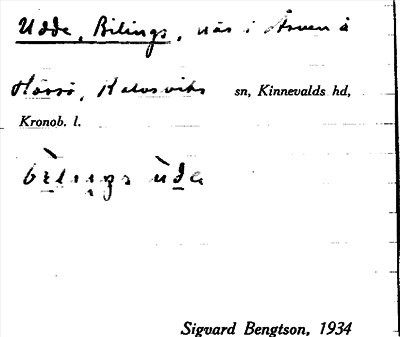 Udde, Bilings, näs i Åsnen å
Hössö, Kalvsviks sn, Kinnevalds hd,
Kronob. l.
bìlıngs ùdɐ
Sigvard Bengtson, 1934